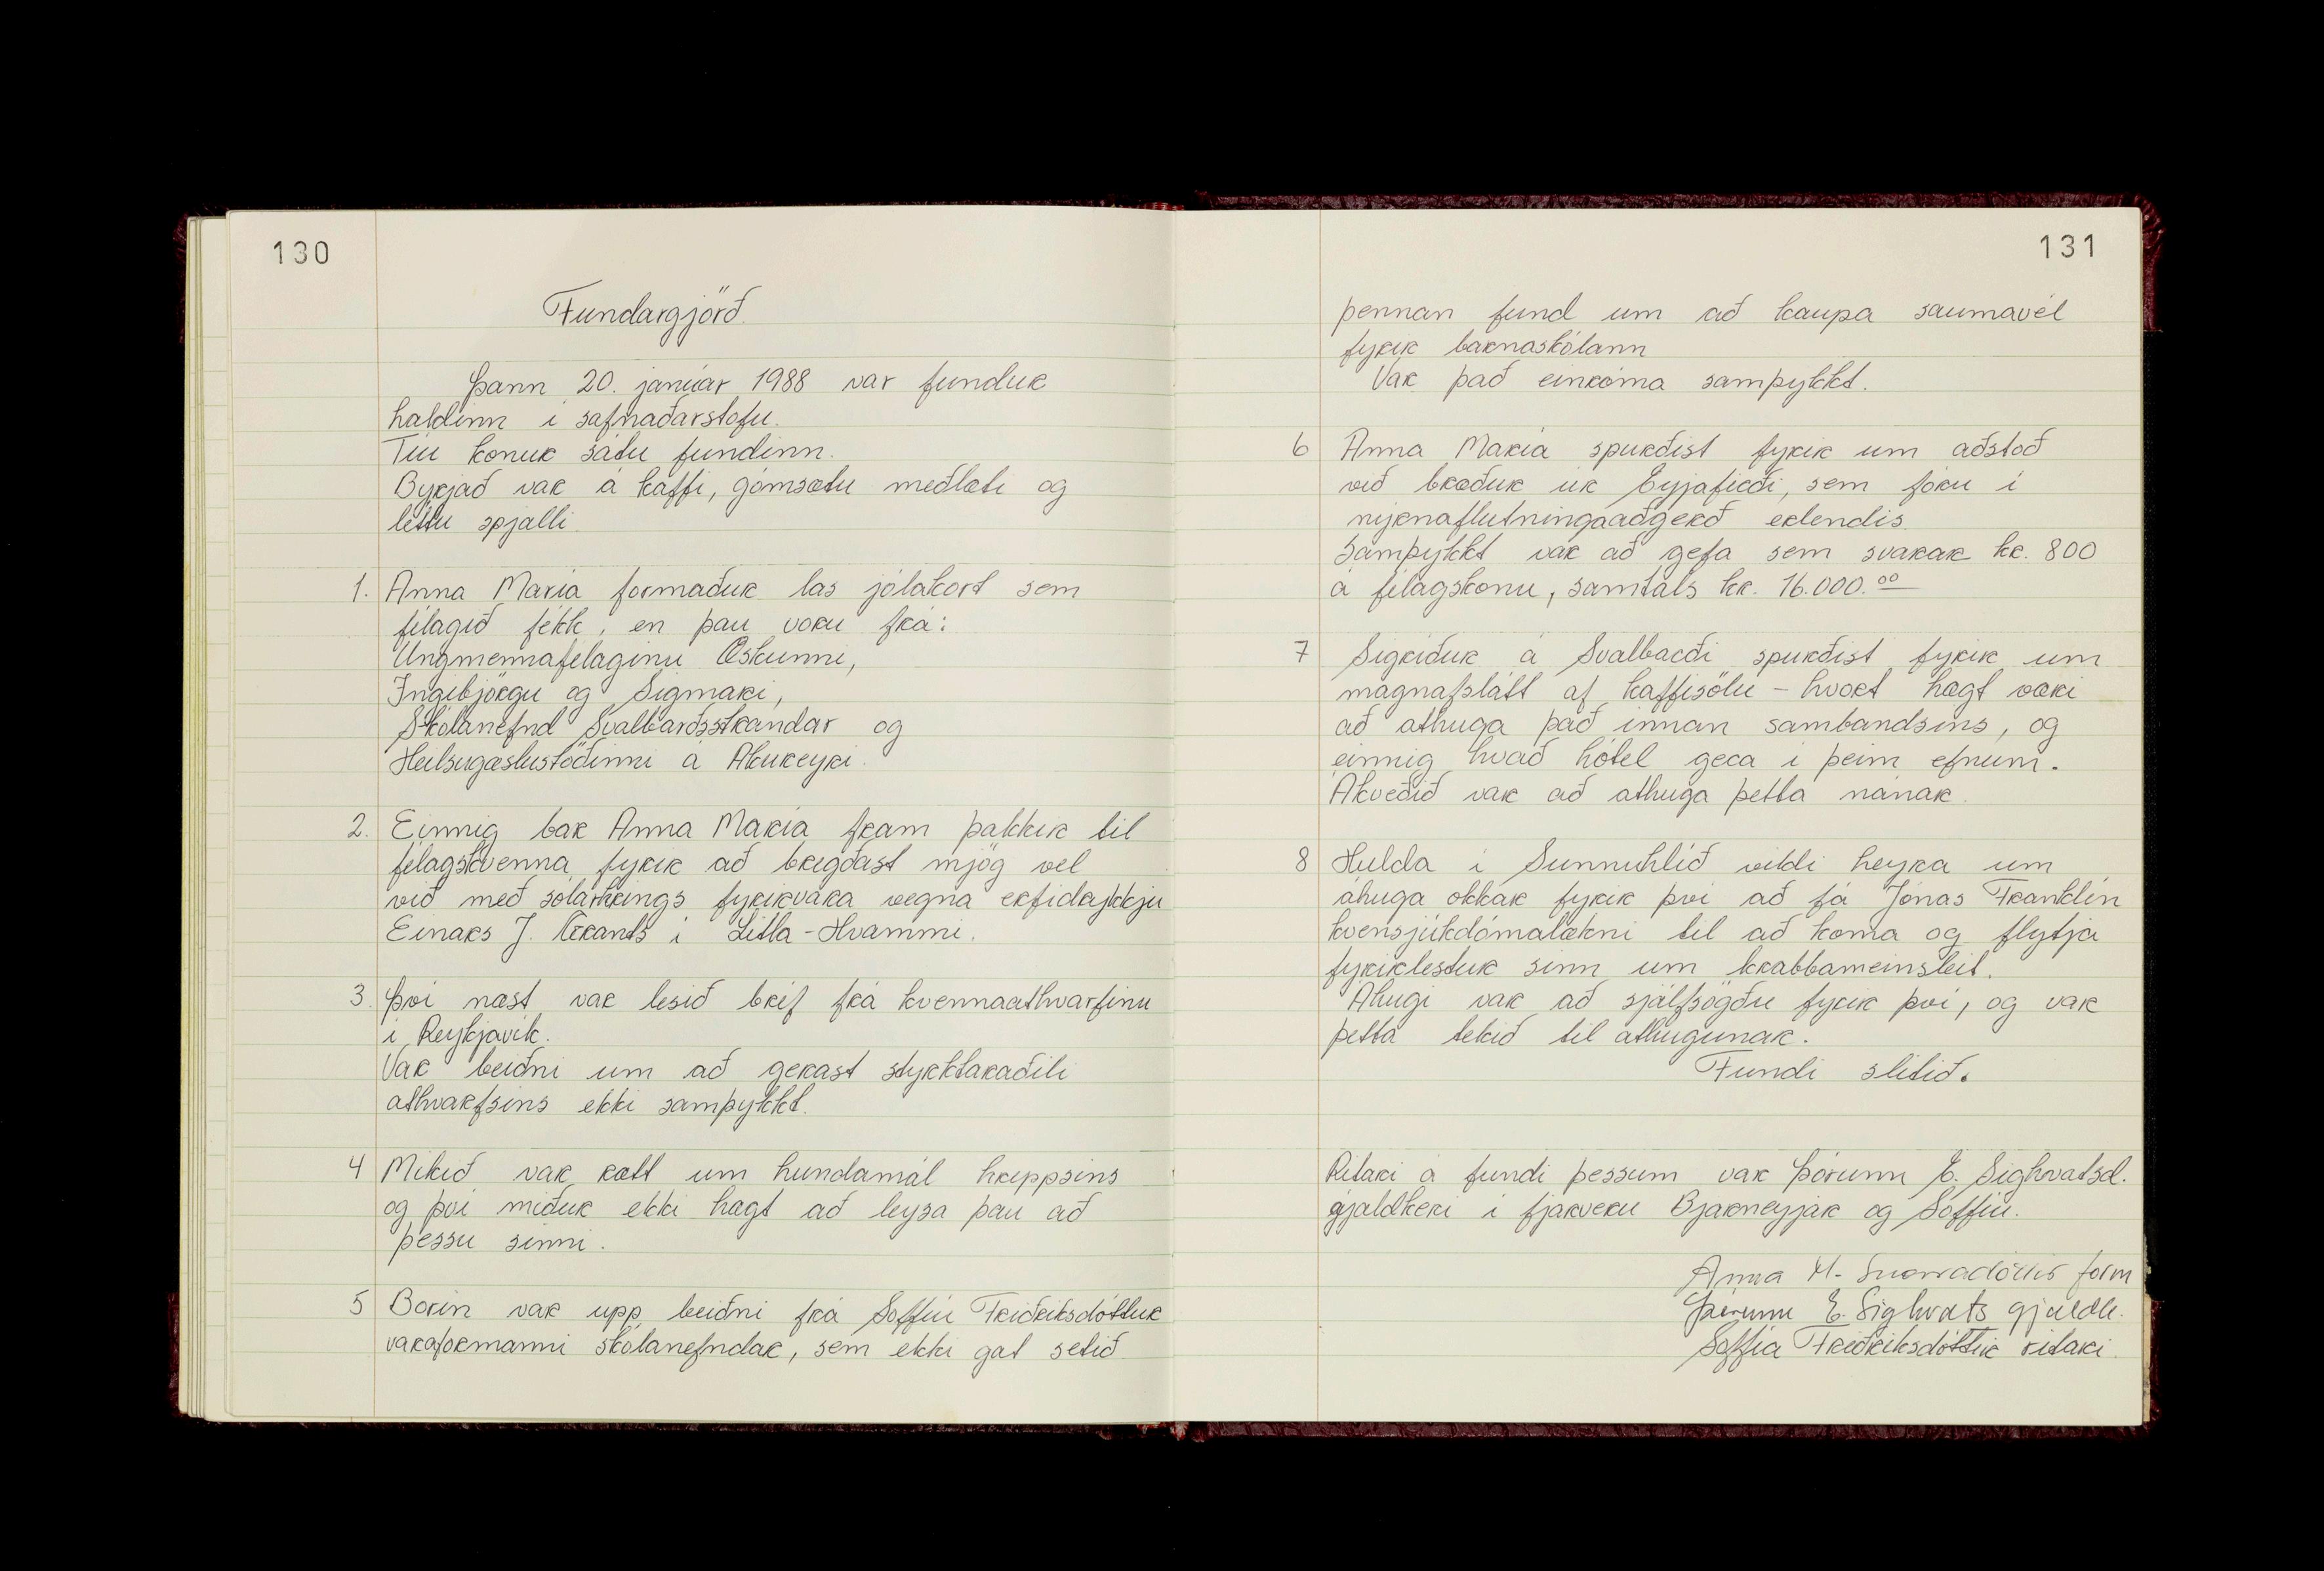 130
Fundargjörð.
Þann 20. janúar 1988 var fundur
haldinn í safnaðarstofu.
Tíu konur sátu fundinn.
Byrjað var á kaffi, gómsætu meðlæti og
léttu spjalli.
1. Anna María formaður las jólakort sem
félagið fékk, en þau voru frá:
Ungmennafélaginu Æskunni,
Ingibjörgu og Sigmari,
Skólanefnd Svalbarðsstrandar og
Heilsugæslustöðinni á Akureyri.
2. Einnig bar Anna María fram þakkir til
félagskvenna fyrir að bregðast mjög vel
við með sólarhrings fyrirvara vegna erfidrykkju
Einars J. Grants í Litla-Hvammi.
3. Því næst var lesið bréf frá kvennaathvarfinu
í Reykjavík.
Var beiðni um að gerast styrktaraðili
athvarfsins ekki samþykkt.
4 Mikið var rætt um hundamál hreppsins
og því miður ekki hægt að leysa þau að
þessu sinni.
5 Borin var upp beiðni frá Soffíu Friðriksdóttur
varaformanni skólanefndar, sem ekki gat setið
131
þennan fund um að kaupa saumavél
fyrir barnaskólann
Var það einróma samþykkt.
6 Anna María spurðist fyrir um aðstoð
við bræður úr Eyjafirði, sem fóru í
nýrnaflutningaaðgerð erlendis.
Samþykkt var að gefa sem svarar kr. 800
á félagskonu, samtals kr. 16.000.00
7 Sigríður á Svalbarði spurðist fyrir um
magnafslátt af kaffisölu - hvort hægt væri
að athuga það innan sambandsins, og
einnig hvað hótel gera í þeim efnum.
Ákveðið var að athuga þetta nánar.
8 Hulda í Sunnuhlíð vildi heyra um
áhuga okkar fyrir því að fá Jónas Franklín
kvensjúkdómalækni til að koma og flytja
fyrirlestur sinn um krabbameinsleit.
Áhugi var að sjálfsögðu fyrir því, og var
þetta tekið til athugunar.
Fundi slitið.
Ritari á fundi þessum var Þórunn E. Sighvatsd.
gjaldkeri í fjarveru Bjarneyjar og Soffíu.
Anna M. Snorradóttir form
Þórunn E. Sighvats gjaldk.
Soffía Friðriksdóttir ritari.